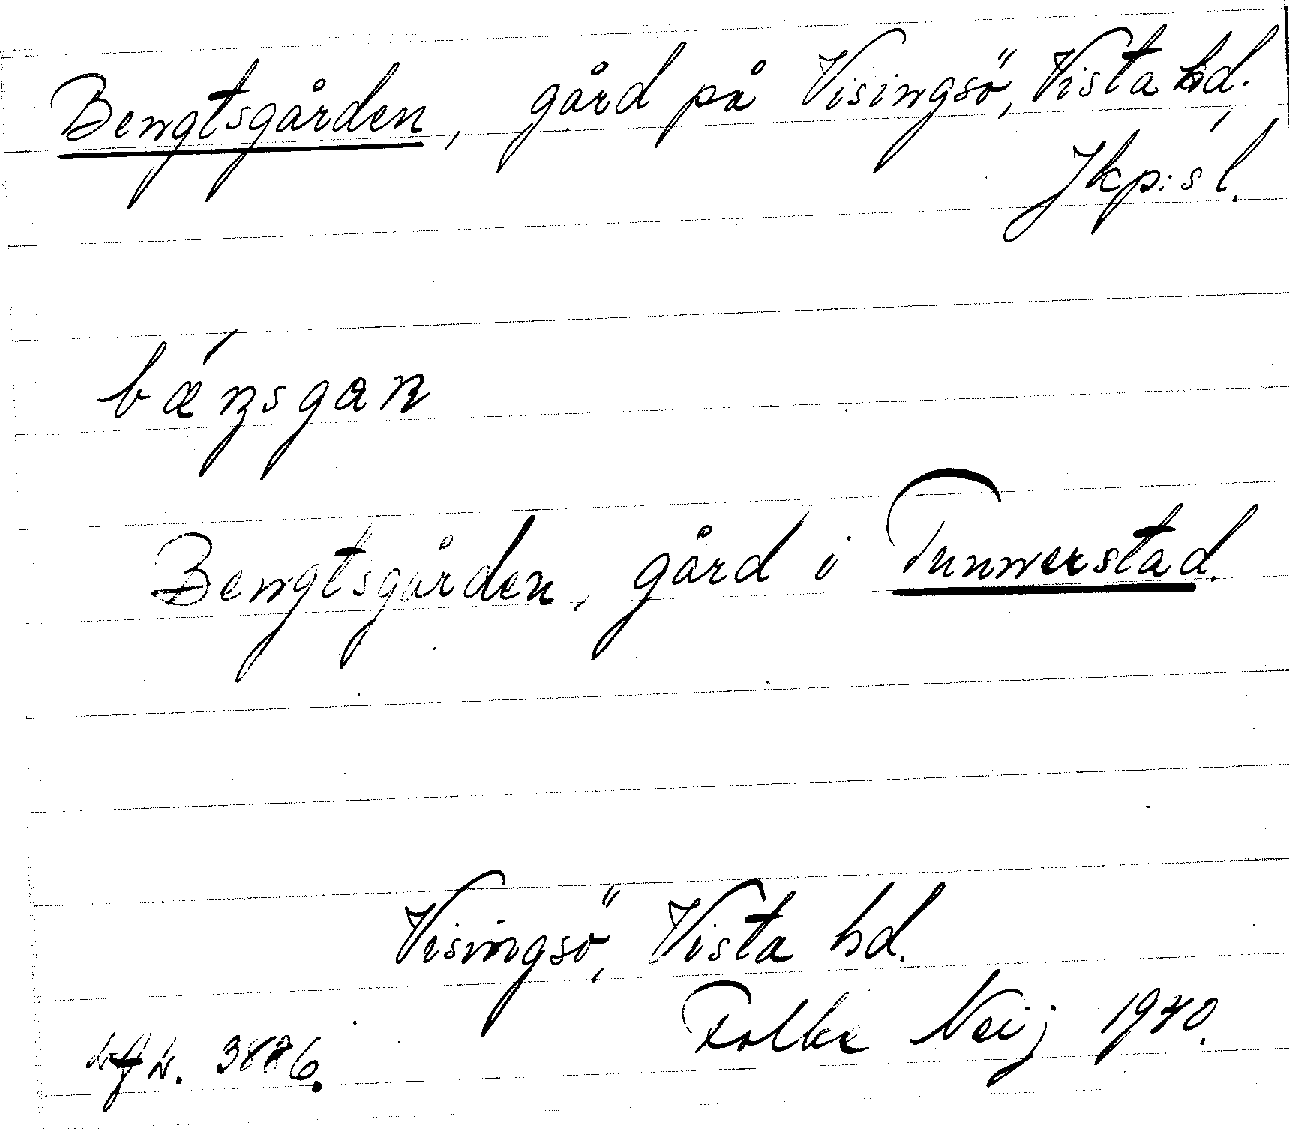 Bengtsgården, gård på Visingsö, Vista hd.,
Jkp:s l.
bǽŋsgan
Bengtsgården, gård i Tunnerstad.
Visingsö, Vista hd.
Folke Neij 1940.